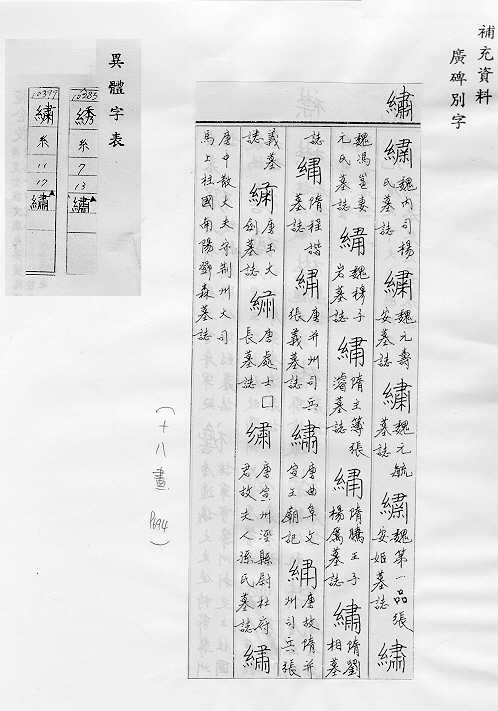 補充資料
廣碑別字
繡
繡魏內司楊氏墓誌繡魏元壽安墓誌繡魏元毓墓誌繡魏第一品張安姬墓誌繡
魏馮邕妻元氏墓誌繡魏穆子岩墓誌繡隋主簿張濬墓誌繡隋騰王子楊厲墓誌繡隋劉相墓
誌繡隋程諧墓誌繡唐并州司兵張義墓誌繡唐曲阜文宣王廟記繡唐故隋并州司兵張
義墓誌繡唐王大劍墓誌繡唐處士口長墓誌繡唐宣州涇縣尉杜府君故夫人孫氏墓誌繡
唐中散大夫守荆州大司馬上柱國南陽鄧森墓誌
(十八畫 P694)
異體字表
10385
綉
糸
7
13
繡
10397
繡
糸
11
17
繡